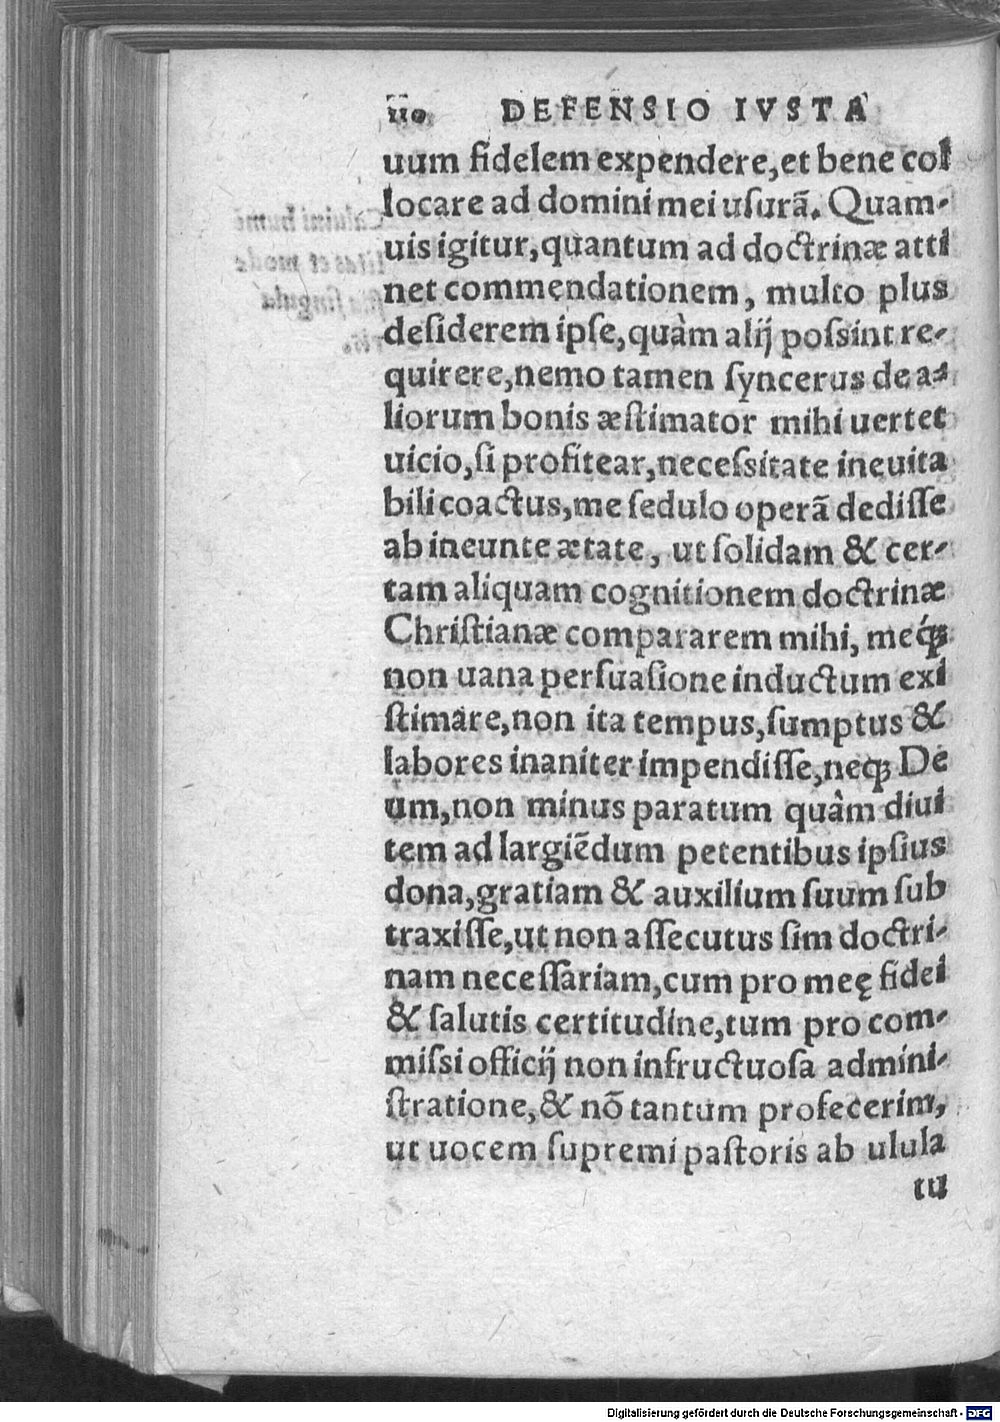 110 DEFENSIO IVSTA
uum fidelem expendere, et bene col
locare ad domini mei uſurã. Quam-
uis igitur, quantum ad doctrinæ atti
net commendationem, multo plus
deſiderem ipſe, quàm alij poſsint re-
quirere, nemo tamen ſyncerus de a-
liorum bonis æſtimator mihi uertet
uicio, ſi profitear, neceſsitate ineuita
bili coactus, me ſedulo operã dediſſe
ab ineunte ætate, ut ſolidam & cer-
tam aliquam cognitionem doctrinæ
Chriſtianæ compararem mihi, meq́;
non uana perſuaſione inductum exi
ſtimare, non ita tempus, ſumptus &
labores inaniter impendiſſe, neq; De
um, non minus paratum quàm diui
tem ad largiẽdum petentibus ipſius
dona, gratiam & auxilium ſuum ſub
traxiſſe, ut non aſſecutus ſim doctri-
nam neceſſariam, cum pro meę fidei
& ſalutis certitudine, tum pro com-
miſsi officij non infructuoſa admini-
ſtratione, & nõ tantum profecerim,
ut uocem ſupremi paſtoris ab ulula
tu
Digitalisierung gefördert durch die Deutsche Forschungsgemeinschaft - DFG